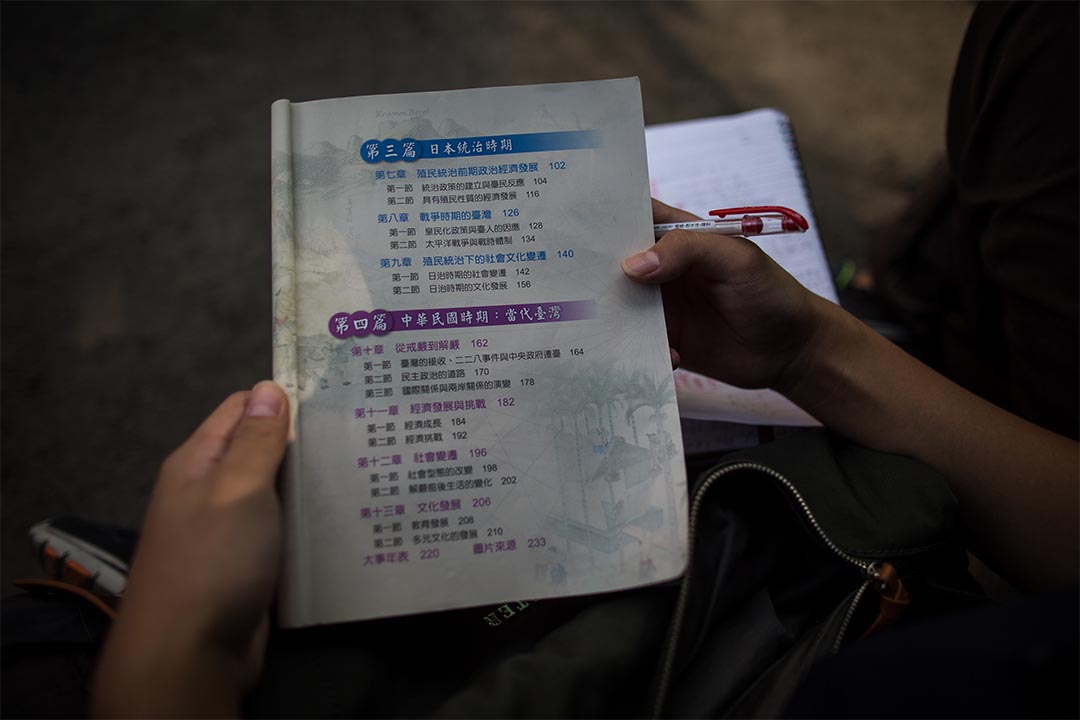 第三篇 日本統治時期
第七章 殖民統治前期政治經濟發展 102
第一節 統治政策的建立與臺民反應 104
第二節 具有殖民性質的經濟發展 116
第八章 戰爭時期的臺灣 126
第一節 皇民化政策與臺人的因應 128
第二節 太平洋戰爭與戰時體制 134
第九章 殖民統治下的社會文化變遷 140
第一節 日治時期的社會變遷 142
第二節 日治時期的文化發展 156
第四篇 中華民國時期：當代臺灣
第十章 從戒嚴到解嚴 162
第一節 臺灣的接收、二二八事件與中央政府遷臺 164
第二節 民主政治的道路 170
第三節 國際關係與兩岸關係的演變 178
第十一章 經濟發展與挑戰 182
第一節 經濟成長 184
第二節 經濟挑戰 192
第十二章 社會變遷 196
第一節 社會型態的改變 198
第二節 解嚴前後生活的變化 202
第十三章 文化發展 206
第一節 教育發展 208
第二節 多元文化的發展 210
大事年表 220 圖片來源 233